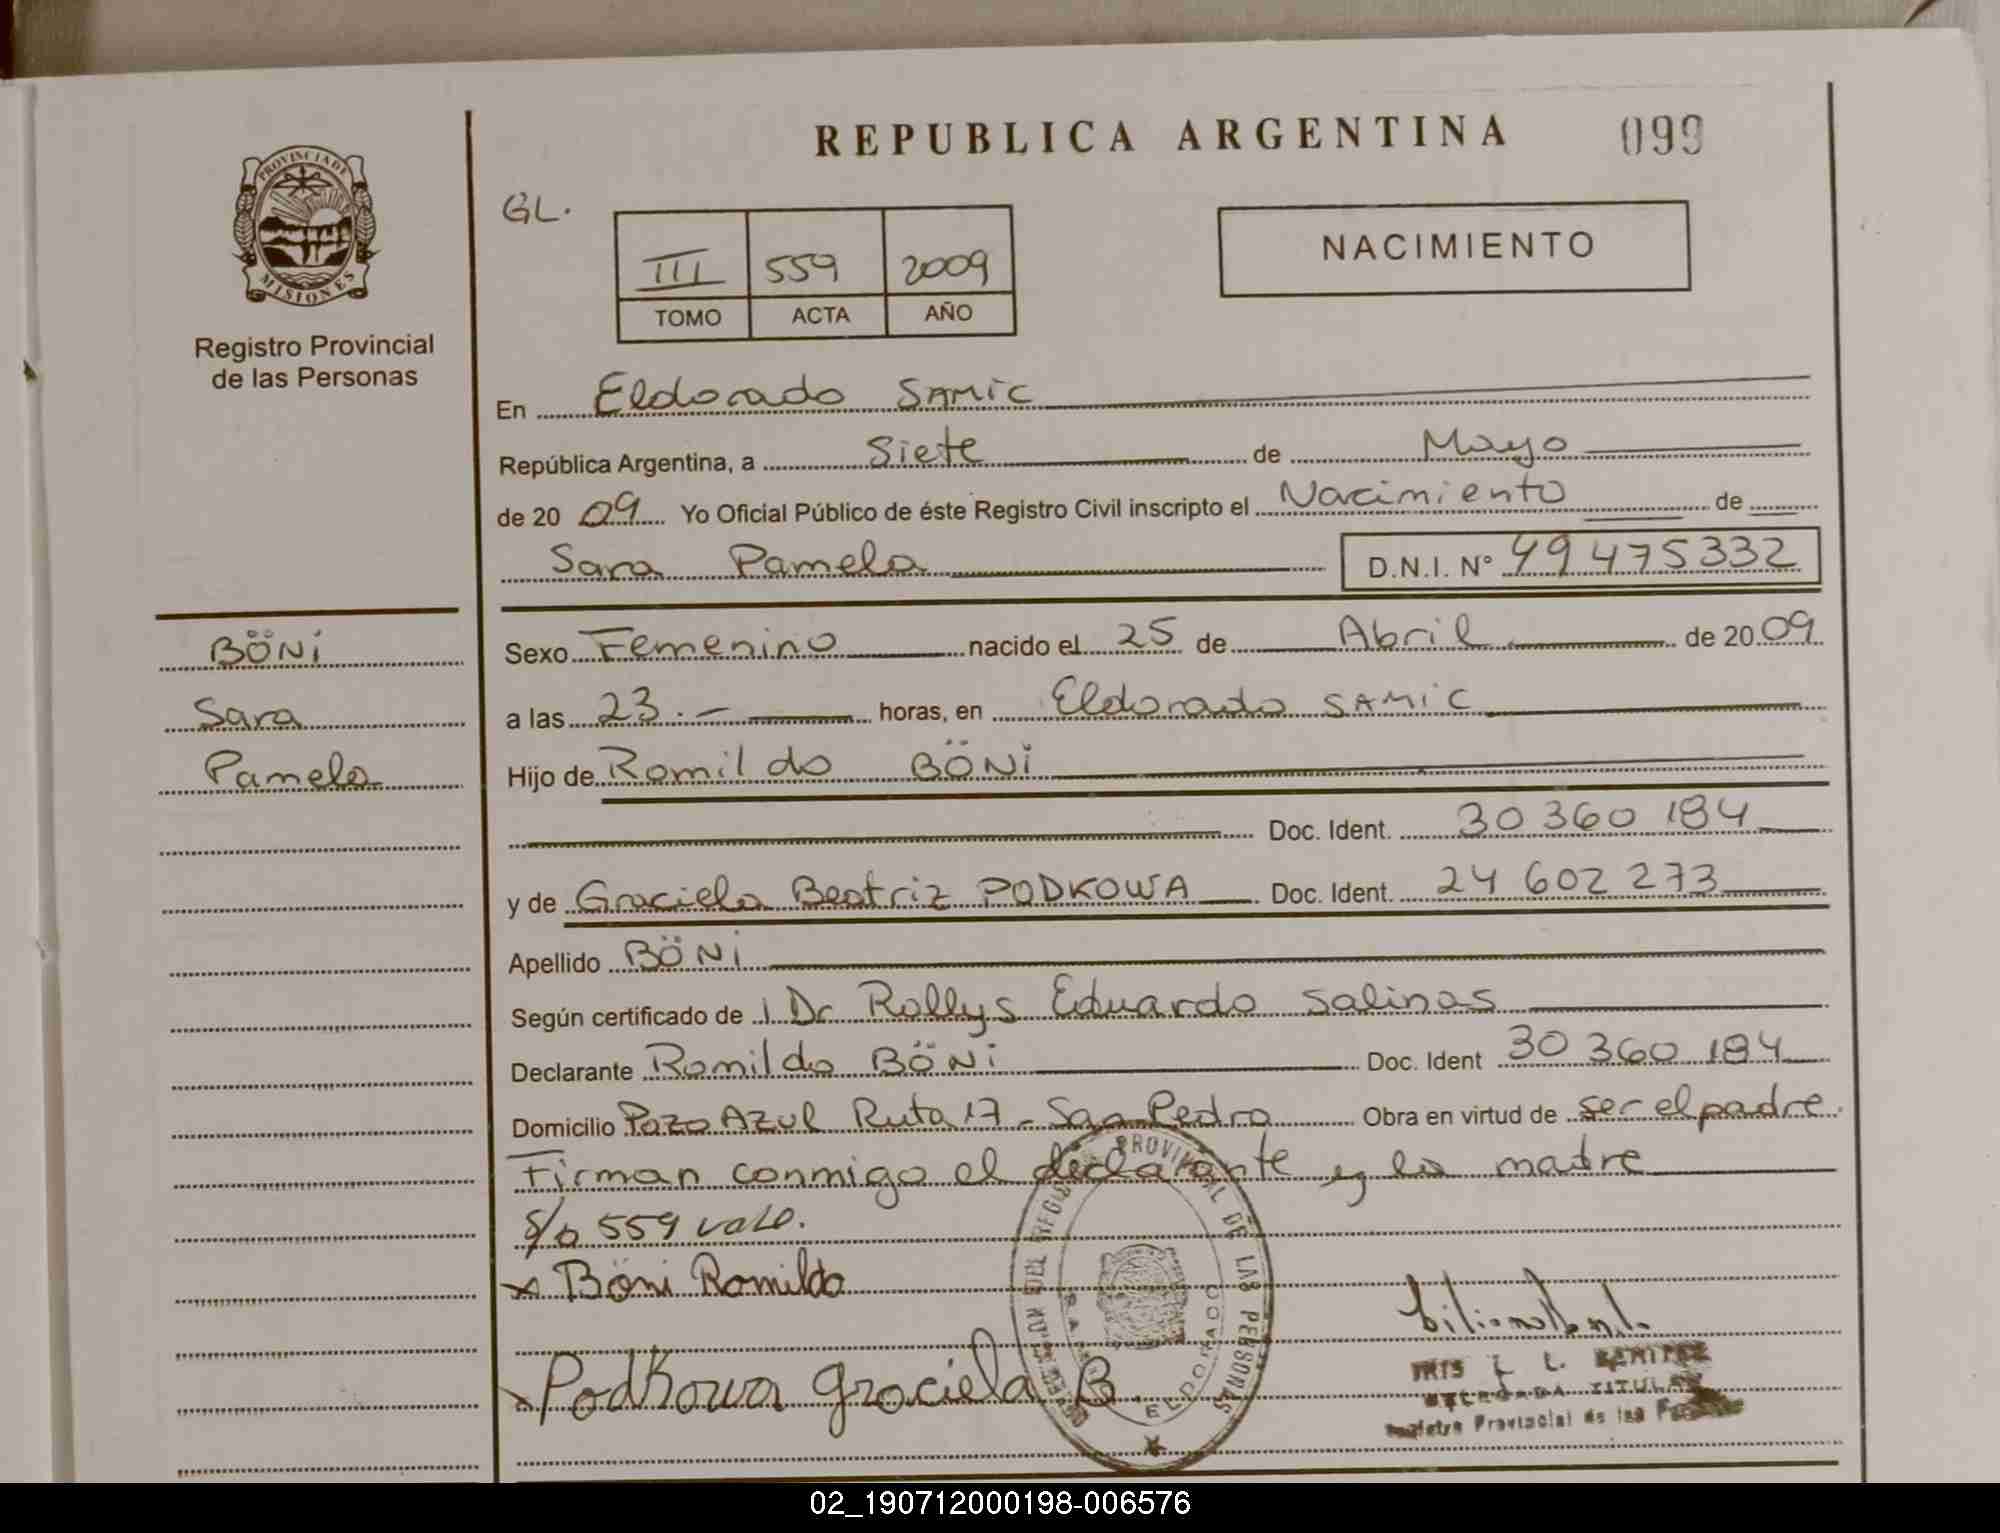 REPUBLICA ARGENTINA
099
PROVINCIA DE
MISIONES
Registro Provincial
de las Personas
GL.
III 559 2009
TOMO ACTA AÑO
NACIMIENTO
En Eldorado SAMIC
República Argentina, a Siete de Mayo
de 2009 Yo Oficial Público de éste Registro Civil inscripto el Nacimiento de
Sara Pamela D.N.I. N° 49 475332
BÖNi
Sara
Pamela
Sexo Femenino nacido el 25 de Abril de 2009
a las 23.- horas, en Eldorado SAMIC
Hijo de Romildo BÖNi
Doc. Ident. 30 360 184
y de Graciela Beatriz PODKOWA Doc. Ident. 24 602 273
Apellido BÖNi
Según certificado de Dr Rollys Eduardo Salinas
Declarante Romildo BÖNi Doc. Ident 30 360 184
Domicilio Pozo AZUL Ruta 17 - San Pedro Obra en virtud de ser el padre.
Firman conmigo el declarante y la madre
S/o 559 vale.
x Böni Romildo
x Podkowa Graciela B.
PROVINCIAL DE LAS PERSONAS
ELDORADO
IRIS L. BENITEZ
DELEGADA TITULAR
Registro Provincial de las Personas
02_190712000198-006576